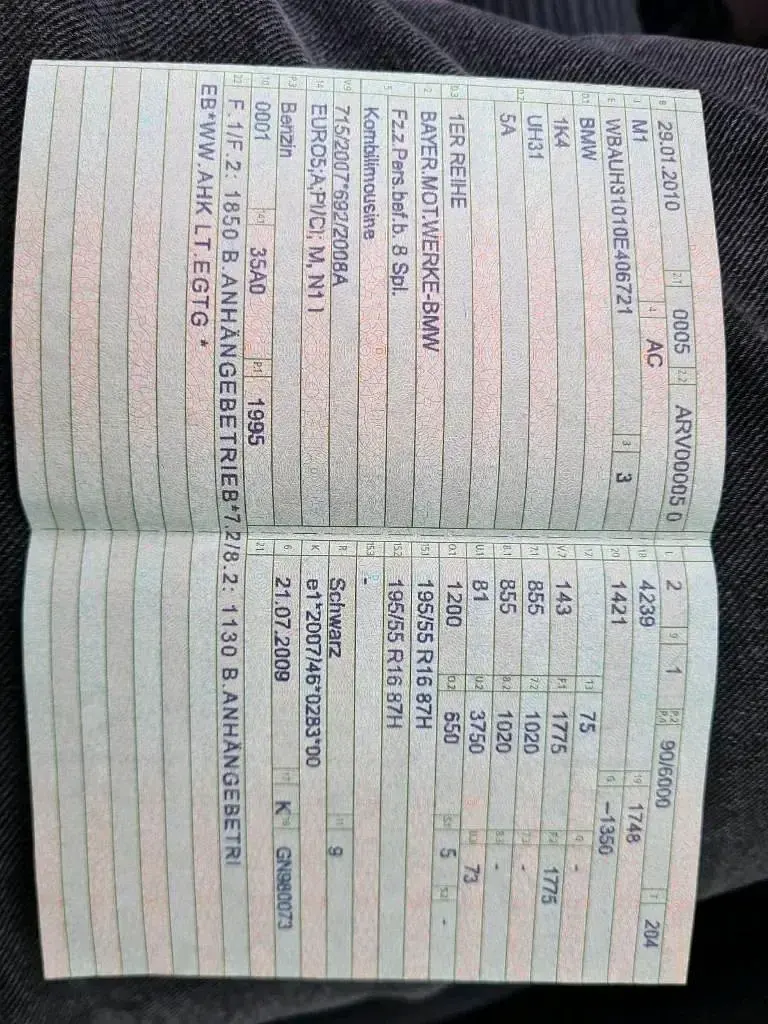 B 29.01.2010 2.1 0005 2.2 ARV00005 0
J M1 4 AC
E WBAUH31010E406721 3 3
D.1 BMW
1K4
D.2 UH31
5A
D.3 1ER REIHE
2 BAYER.MOT.WERKE-BMW
5 Fz.z.Pers.bef.b. 8 Spl.
Kombilimousine
V.9 715/2007*692/2008A
14 EURO5;A;PI/CI; M, N1 I
P.3 Benzin
10 0001 14.1 35A0 P.1 1995
L 2 9 1 P.2 P.4 90/6000 T 204
18 4239 19 1748
20 1421 G -1350
12 13 75 Q -
V.7 143 F.1 1775 F.2 1775
7.1 855 7.2 1020 7.3 -
8.1 855 8.2 1020 8.3 -
U.1 81 U.2 3750 U.3 73
O.1 1200 O.2 650 S.1 5 S.2 -
15.1 195/55 R16 87H
15.2 195/55 R16 87H
15.3 -
R Schwarz 11 9
K e1*2007/46*0283*00
6 21.07.2009 17 K 16 GN980073
21
22 F.1/F.2: 1850 B.ANHÄNGEBETRIEB*7.2/8.2: 1130 B.ANHÄNGEBETRI
EB*WW.AHK LT.EGTG *